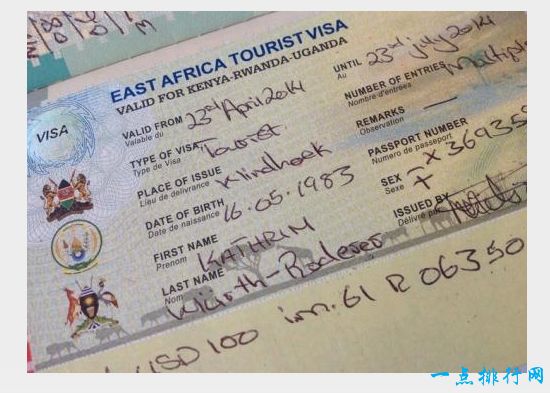 EAST AFRICA TOURIST VISA
VALID FOR KENYA-RWANDA-UGANDA
VISA
VALID FROM 23rd April 2014
Valable du
UNTIL 23rd July 2014
Au
TYPE OF VISA Tourist
Type de Visa
NUMBER OF ENTRIES Multiple
Nombre d'entrées
PLACE OF ISSUE Windhoek
Lieu de delivrance
REMARKS —
Observation
DATE OF BIRTH 16.05.1983
Date de naissance
PASSPORT NUMBER
Numero de passeport
FIRST NAME KATHRIN
Prenom
SEX F
Sexe
LAST NAME
Nom
ISSUED BY
Délivré par
USD 100 im. 61 R 06350
一点排行网